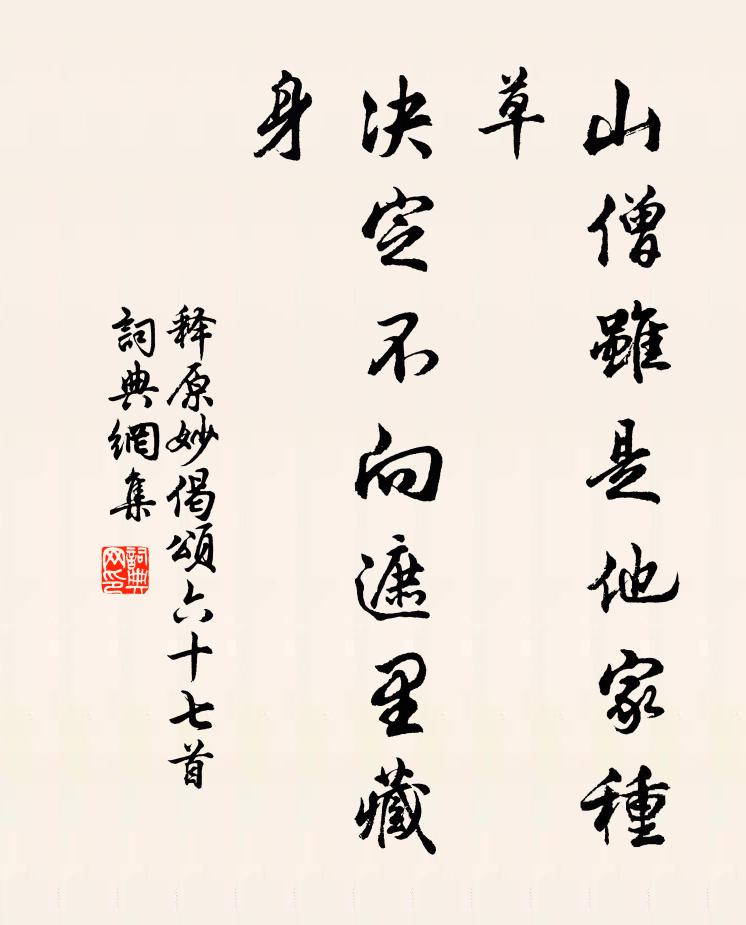 山僧雖是他家種
草
决定不向遮里藏
身
释原妙偈頌六十七首
詞典網集
詞典网印